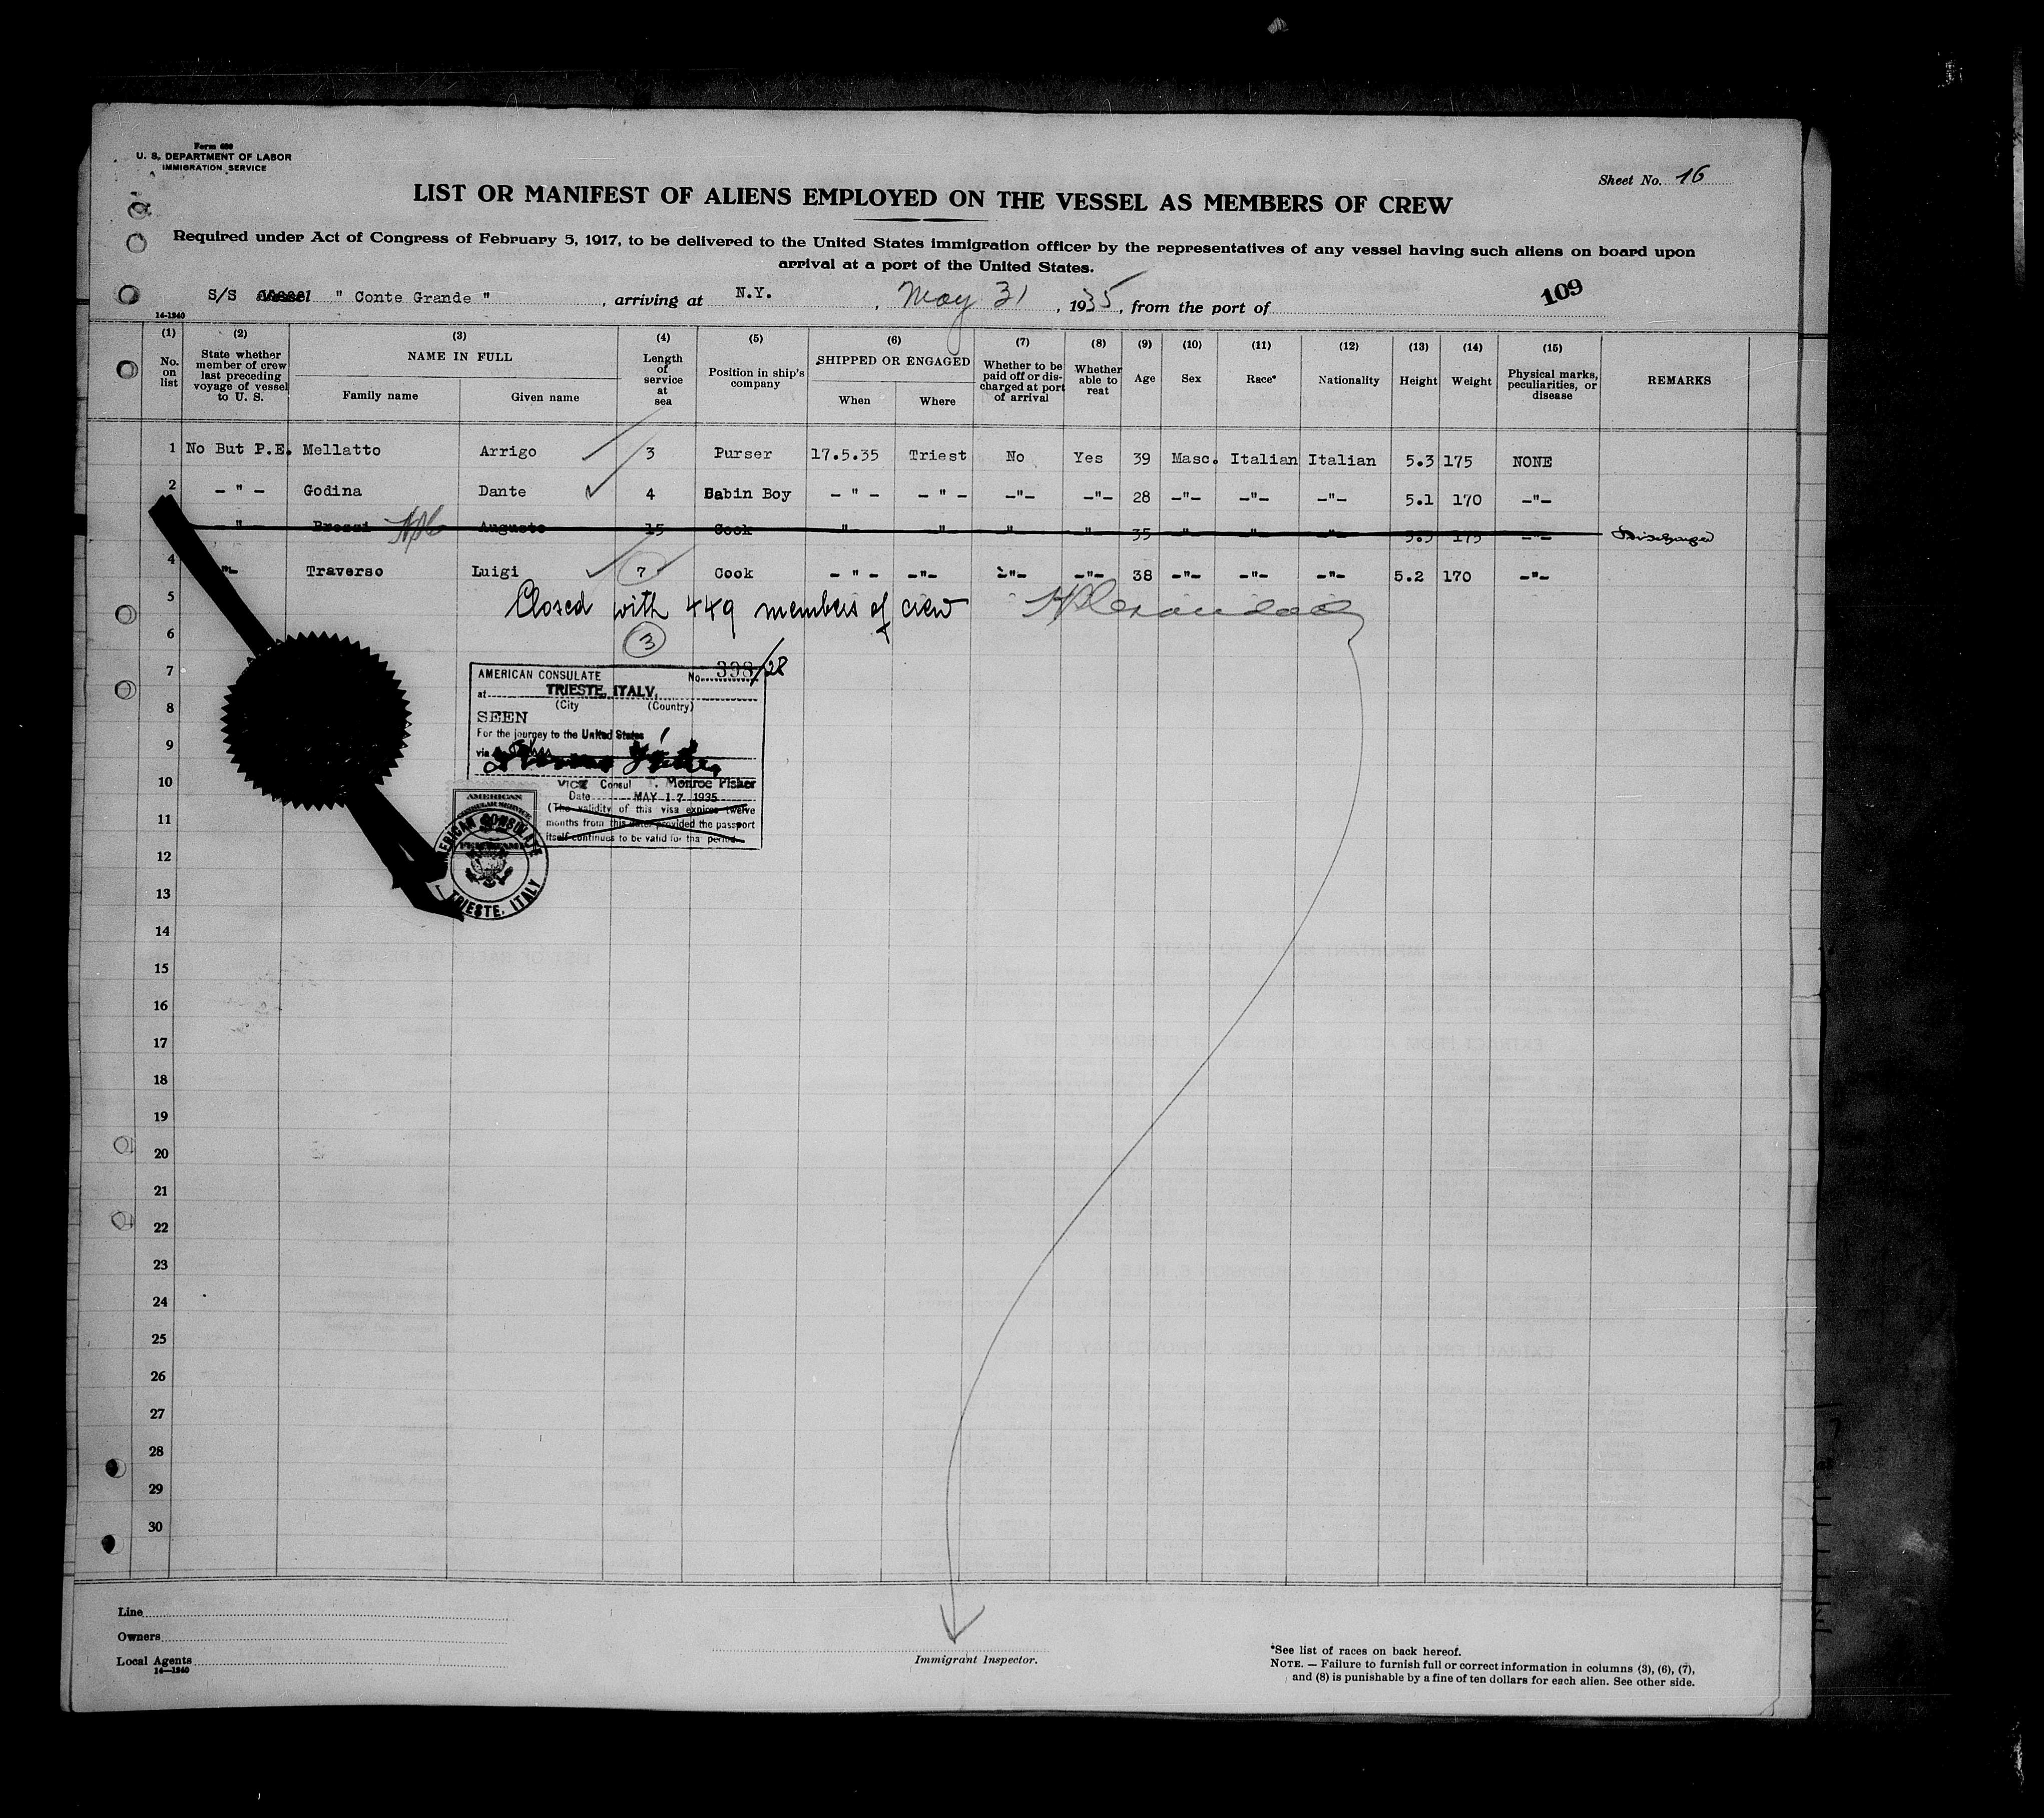 Form 680
U. S. DEPARTMENT OF LABOR
IMMIGRATION SERVICE
Sheet No. 16
LIST OR MANIFEST OF ALIENS EMPLOYED ON THE VESSEL AS MEMBERS OF CREW
Required under Act of Congress of February 5, 1917, to be delivered to the United States immigration officer by the representatives of any vessel having such aliens on board upon
arrival at a port of the United States.
S/S Vessel " Conte Grande " , arriving at N.Y. , May 31 , 1935, from the port of 109
14-1240
(1) (2) (3) (4) (5) (6) (7) (8) (9) (10) (11) (12) (13) (14) (15)
No. on list State whether member of crew last preceding voyage of vessel to U. S. NAME IN FULL Family name Given name Length of service at sea Position in ship's company SHIPPED OR ENGAGED When Where Whether to be paid off or discharged at port of arrival Whether able to reat Age Sex Race* Nationality Height Weight Physical marks, peculiarities, or disease REMARKS
1 No But P.E. Mellatto Arrigo 3 Purser 17.5.35 Triest No Yes 39 Masc. Italian Italian 5.3 175 NONE
2 - " - Godina Dante 4 Babin Boy - " - - " - -"- -"- 28 -"- -"- -"- 5.1 170 -"-
- " - Brozzi Augusto 15 Cook " " " " 35 -"- -"- -"- 5.5 175 -"- Discharged
4 -"- Traverso Luigi 7 Cook - " - -"- -"- -"- 38 -"- -"- -"- 5.2 170 -"-
5 Closed with 449 members of crew
6 3
7
8
9
10
11
12
13
14
15
16
17
18
19
20
21
22
23
24
25
26
27
28
29
30
AMERICAN CONSULATE No. 398/28
at TRIESTE, ITALY,
(City (Country)
SEEN
For the journey to the United States
via
VICE Consul Monroe Fisher
Date MAY 17 1935
(The validity of this visa expires twelve
months from this date provided the passport
itself continues to be valid for tha period.
AMERICAN
CONSULAR SERVICE
AMERICAN CONSULATE
TRIESTE, ITALY
Line
Owners
Local Agents
14-1240
Immigrant Inspector.
*See list of races on back hereof.
NOTE. — Failure to furnish full or correct information in columns (3), (6), (7),
and (8) is punishable by a fine of ten dollars for each alien. See other side.